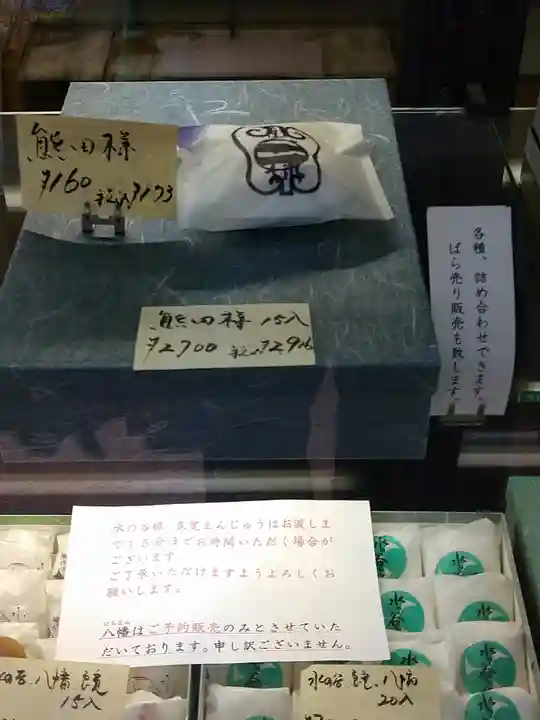 熊田様
¥160 税込¥173
熊田様 15入
¥2700 税込¥2916
各種、詰め合わせできます。
ばら売り販売も致します。
水の谷様 良寛まんじゅうはお渡しま
で15分までお時間いただく場合が
ございます
ご了承いただけますようよろしくお
願いします。
はちまん
八幡はご予約販売のみとさせていた
だいております。申し訳ございません。
15入
水谷、八幡
20入